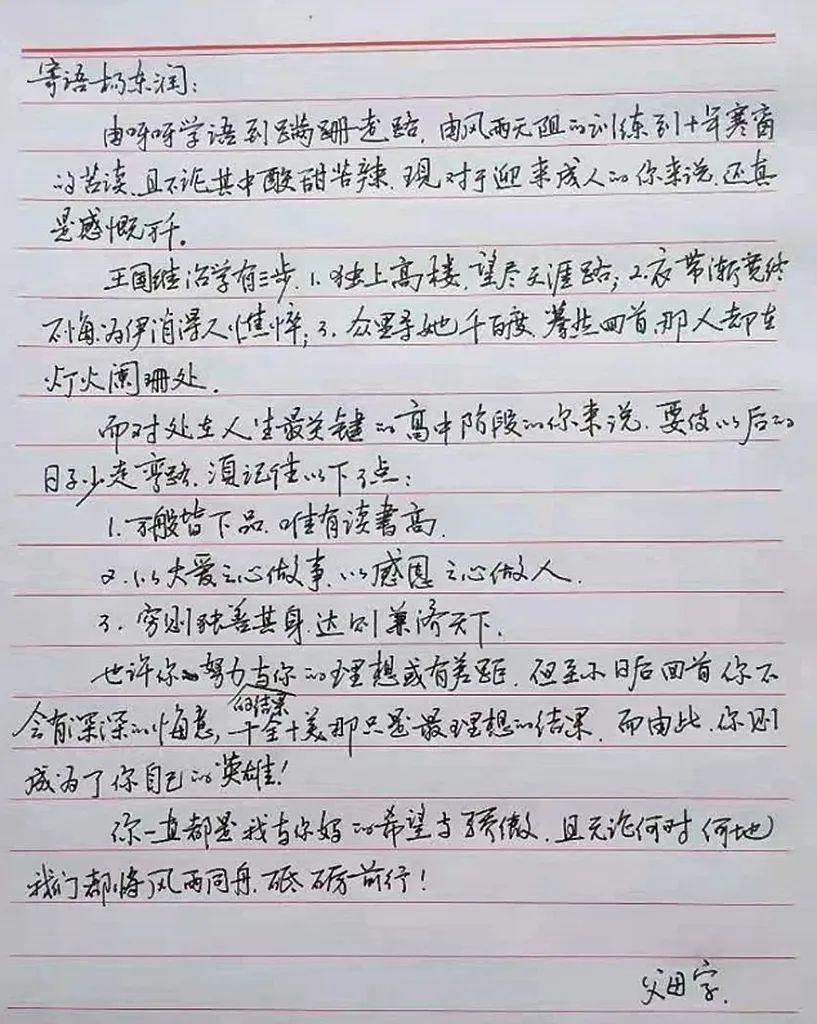 寄语杨东润：
由呀呀学语到蹒跚走路，由风雨无阻的训练到十年寒窗
的苦读，且不论其中酸甜苦辣，现对于迎来成人的你来说，还真
是感慨万千。
王国维治学有三步，1.独上高楼，望尽天涯路；2.衣带渐宽终
不悔，为伊消得人憔悴；3.众里寻她千百度，蓦然回首，那人却在
灯火阑珊处。
而对处在人生最关键的高中阶段的你来说，要使以后的
日子少走弯路，须记住以下3点：
1.万般皆下品，唯有读书高。
2.以大爱之心做事，以感恩之心做人。
3.穷则独善其身，达则兼济天下。
也许你努力的结果与你的理想或有差距，但至少日后回首你不
会有深深的悔意，十全十美那只是最理想的结果，而由此，你则
成为了你自己的英雄！
你一直都是我与你妈的希望与骄傲，且无论何时何地，
我们都将风雨同舟，砥砺前行！
父母字.